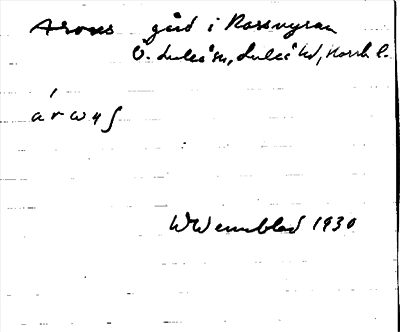 Arons gård i Rossvyran
Ö. Luleå sn, Luleå hd, Norrb. l.
árωnʃ
W Wennblad 1930